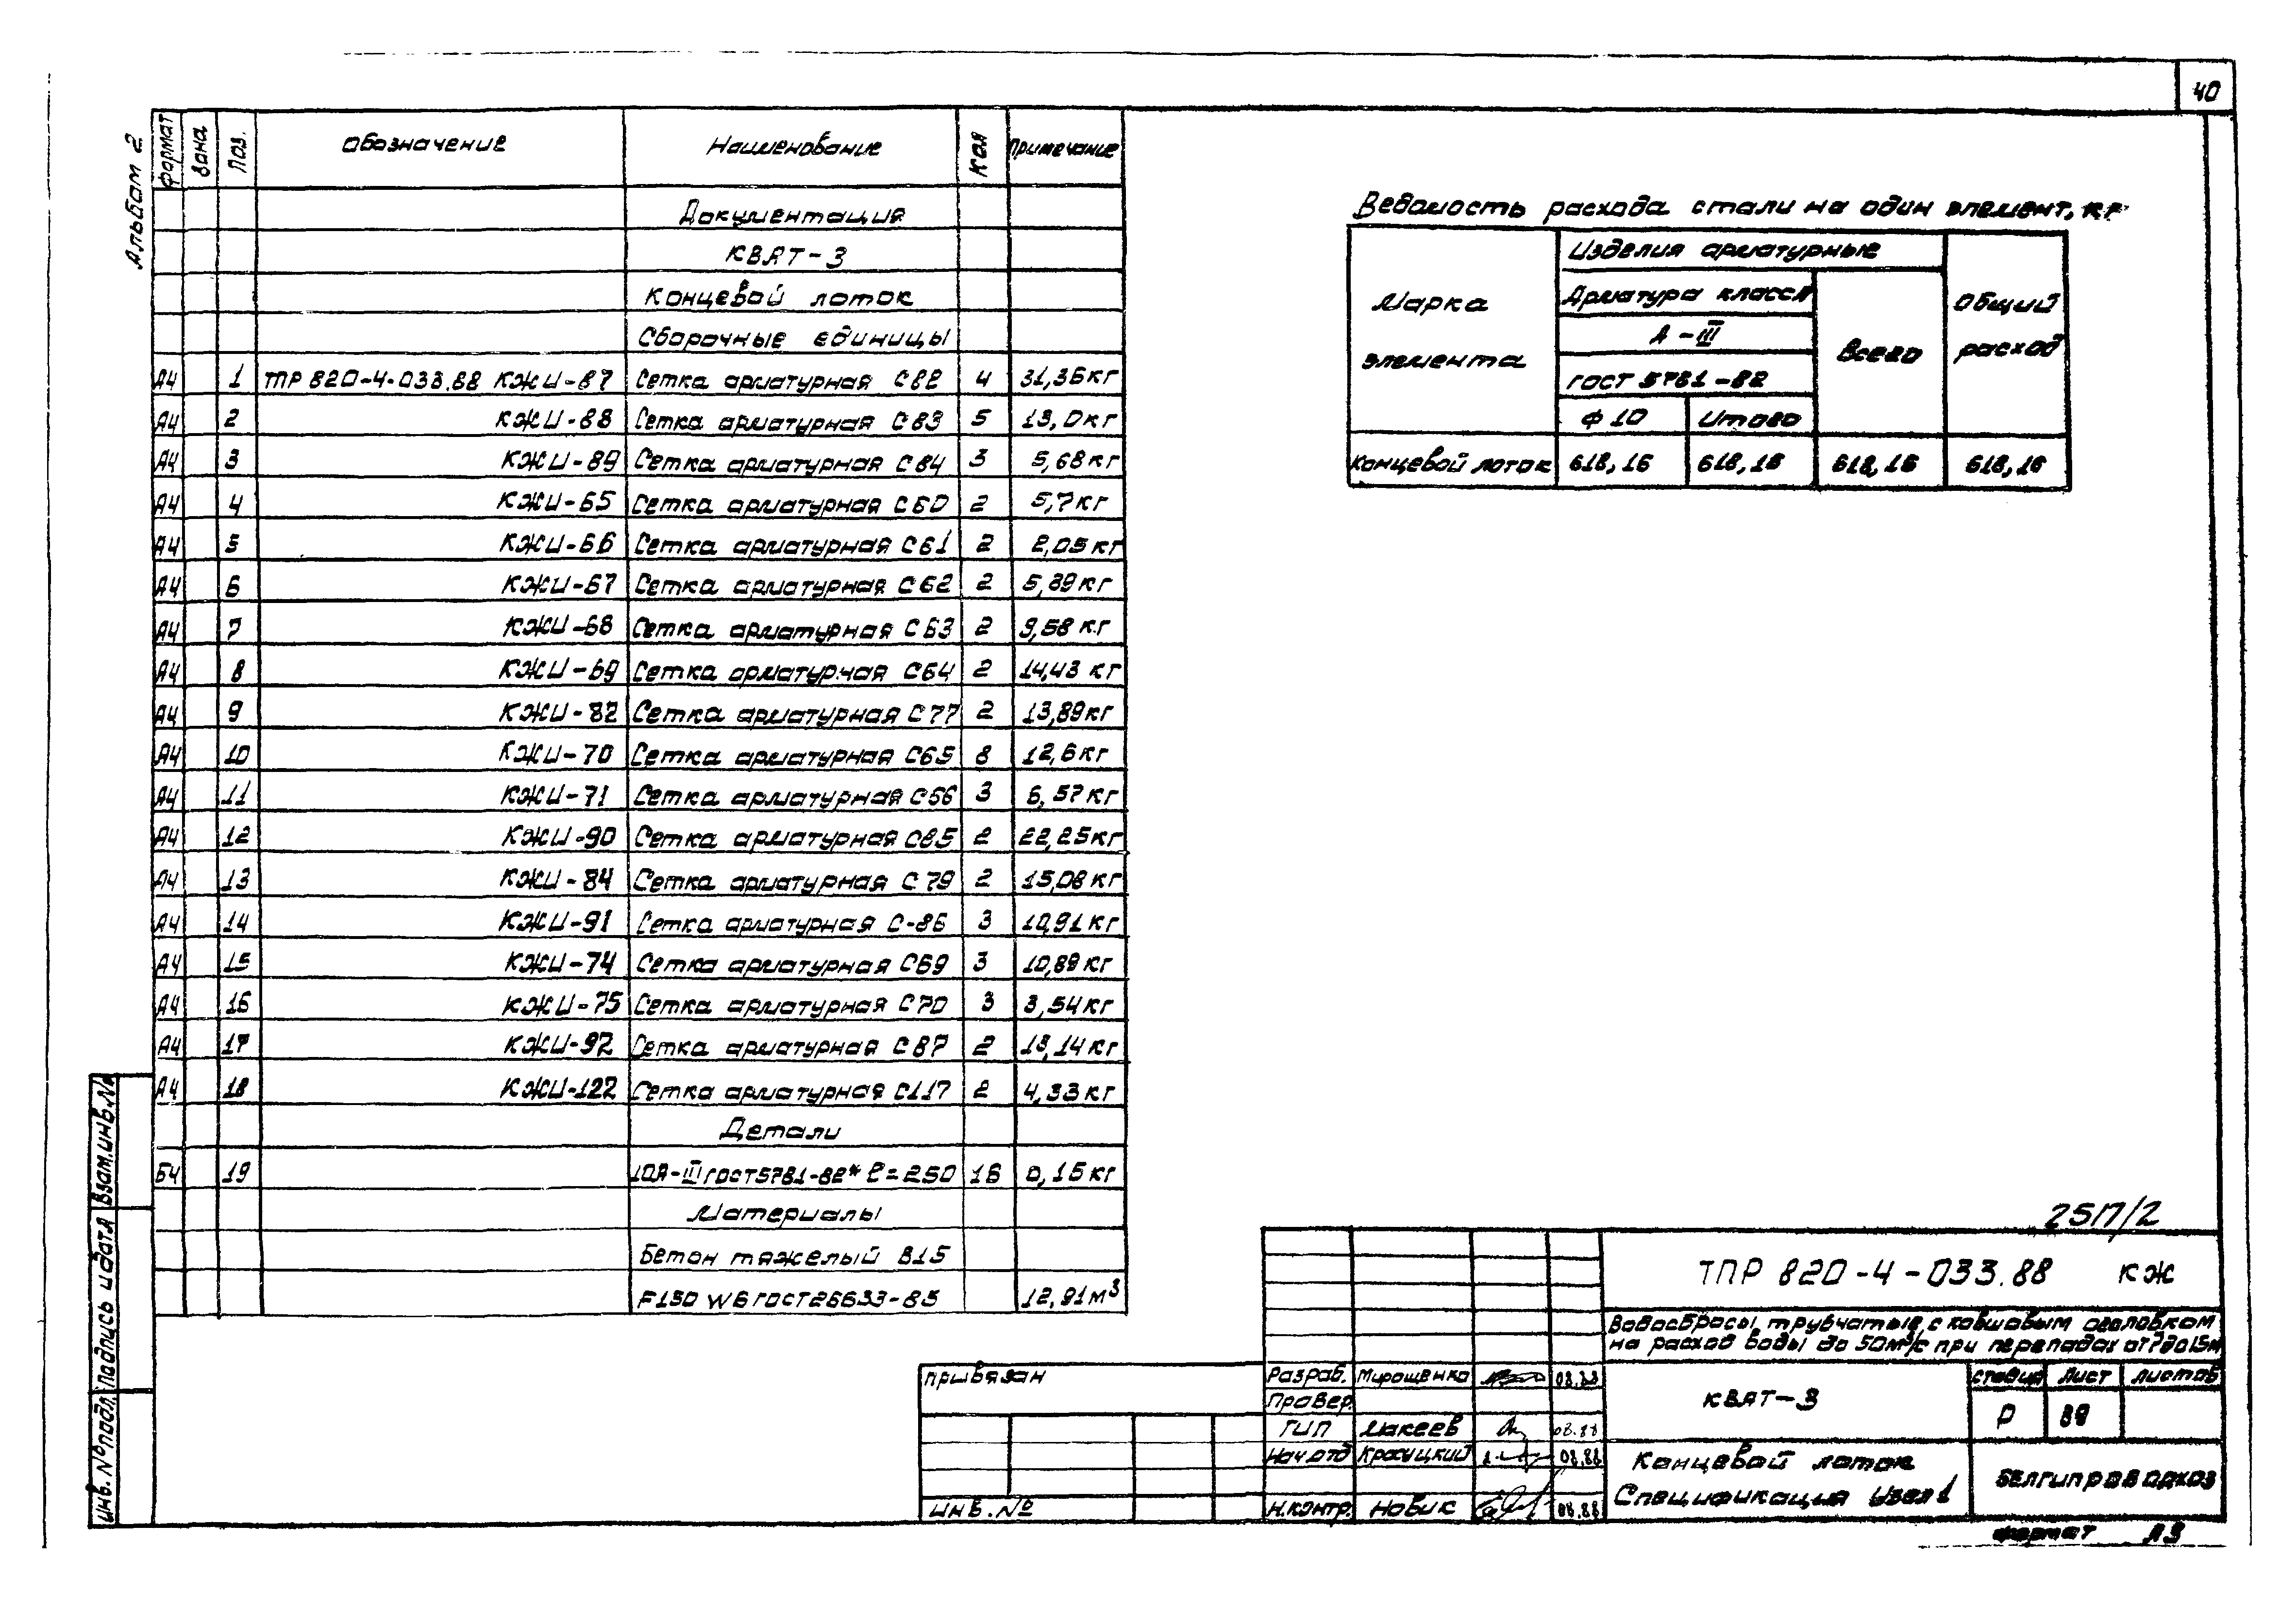 40
Альбом 2
Формат Зона Поз. Обозначение Наименование Кол Примечание
Документация
КВЯТ-3
Концевой лоток
Сборочные единицы
А4 1 ТПР 820-4-033.88 КЖИ-87 Сетка арматурная С82 4 31,36кг
А4 2 КЖИ-88 Сетка арматурная С83 5 13,0кг
А4 3 КЖИ-89 Сетка арматурная С84 3 5,68кг
А4 4 КЖИ-65 Сетка арматурная С60 2 5,7кг
А4 5 КЖИ-66 Сетка арматурная С61 2 2,05кг
А4 6 КЖИ-67 Сетка арматурная С62 2 5,89кг
А4 7 КЖИ-68 Сетка арматурная С63 2 9,58кг
А4 8 КЖИ-69 Сетка арматурная С64 2 14,43кг
А4 9 КЖИ-82 Сетка арматурная С77 2 13,89кг
А4 10 КЖИ-70 Сетка арматурная С65 8 12,6кг
А4 11 КЖИ-71 Сетка арматурная С66 3 6,57кг
А4 12 КЖИ-90 Сетка арматурная С85 2 22,25кг
А4 13 КЖИ-84 Сетка арматурная С79 2 15,08кг
А4 14 КЖИ-91 Сетка арматурная С-86 3 10,91кг
А4 15 КЖИ-74 Сетка арматурная С69 3 10,89кг
А4 16 КЖИ-75 Сетка арматурная С70 3 3,54кг
А4 17 КЖИ-92 Сетка арматурная С87 2 13,14кг
А4 18 КЖИ-122 Сетка арматурная С117 2 4,33кг
Детали
БЧ 19 10А-III ГОСТ5781-82* ℓ=250 16 0,15кг
Материалы
Бетон тяжелый В15
F150 W6 ГОСТ26633-85 12,91м³
Ведомость расхода стали на один элемент, кг
Марка элемента
Изделия арматурные
Арматура класса
А-III
ГОСТ 5781-82
Ф10 Итого
Всего
Общий расход
Концевой лоток 618,16 618,16 618,16 618,16
Инв.№подл. Подпись и дата Взам.инв.№
2517/2
ТПР 820-4-033.88 КЖ
Водосбросы трубчатые с ковшовым оголовком
на расход воды до 50м³/с при перепадах от 7 до 15м
Привязан
Инв.№
Разраб. Мирощенко 08.88
Провер.
ГИП Макеев 08.88
Нач.отд Красуцкий 08.88
Н.контр. Новик 08.88
КВЯТ-3
Стадия Лист Листов
Р 39
Концевой лоток
Спецификация Узел 1
Белгипроводхоз
Формат А3